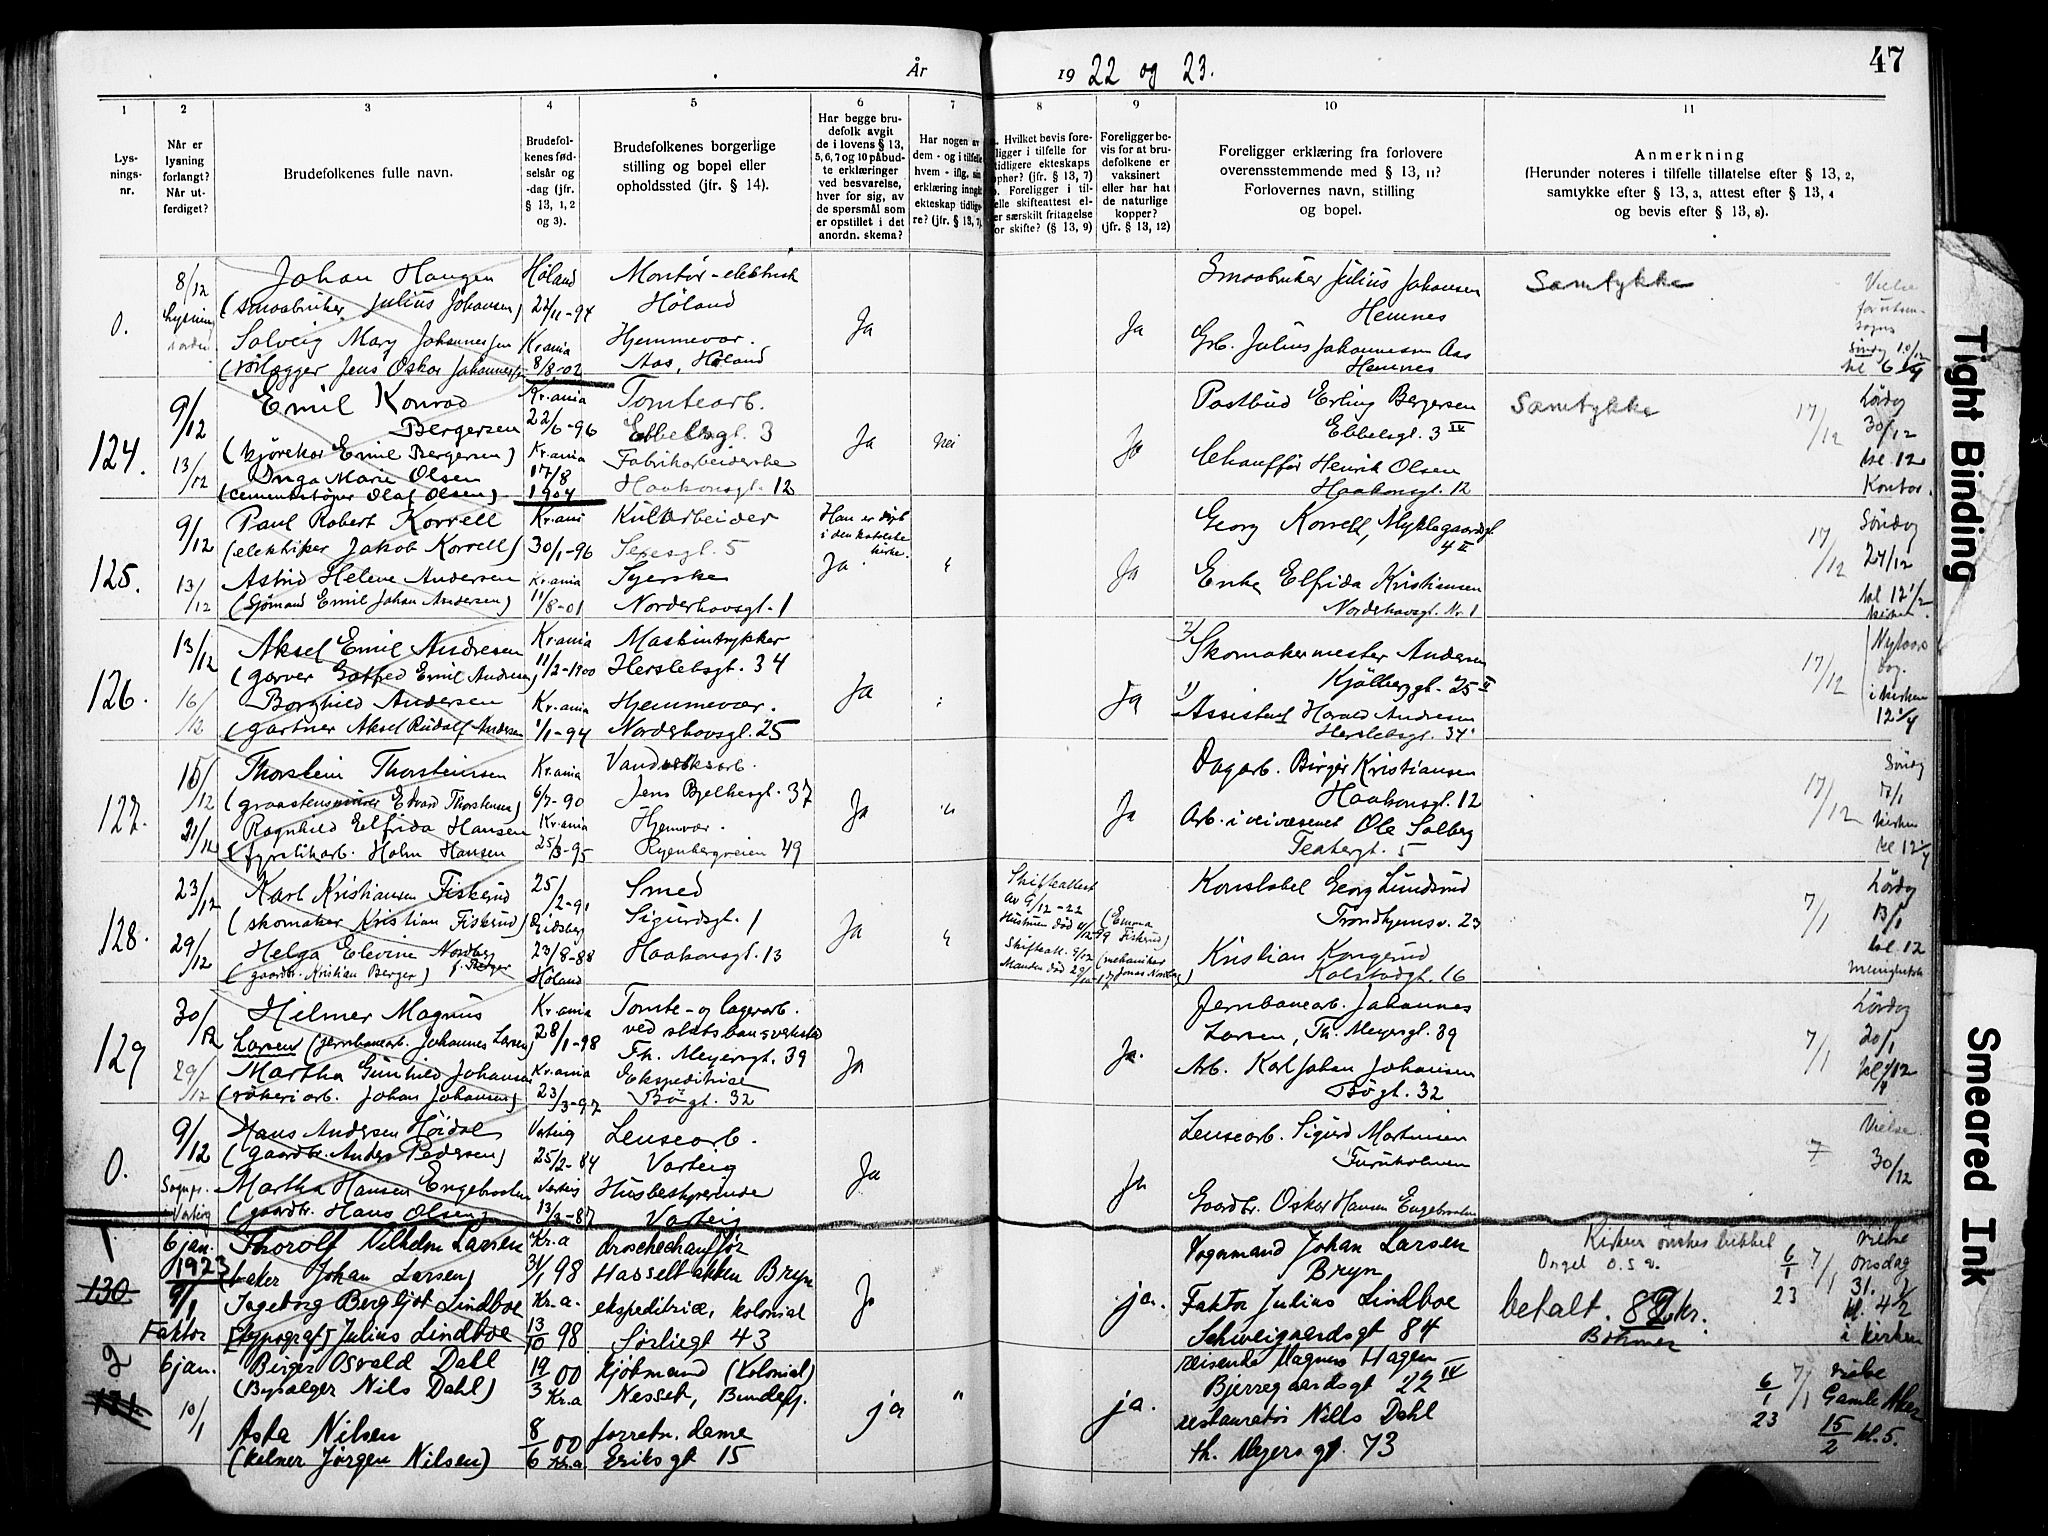 År 1922 og 23.
47
1
2
3
4
5
6
7
8
9
10
11
Lys-
nings-
nr.
Når er
lysning
forlangt?
Når ut-
ferdiget?
Brudefolkenes fulle navn.
Brudefol-
kenes fød-
selsår og
-dag (jfr.
§ 13, 1, 2
og 3).
Brudefolkenes borgerlige
stilling og bopel eller
opholdssted (jfr. § 14).
Har begge bru-
defolk avgit
de i lovens § 13,
5, 6, 7 og 10 påbud-
te erklæringer
ved besvarelse,
hver for sig, av
de spørsmål som
er opstillet i det
anordn. skema?
Har nogen av
dem - og i tilfelle
hvem - iflg. sin
erklæring inngå
ekteskap tidlige-
re? (jfr. § 13, 7)
Hvilket bevis fore-
ligger i tilfelle for
tidligere ekteskaps
ophør? (jfr. § 13, 7)
Foreligger i til-
elle skifteattest el-
er særskilt fritagelse
for skifte? (§ 13, 9)
Foreligger be-
vis for at bru-
defolkene er
vaksinert
eller har hat
de naturlige
kopper?
(jfr. § 13, 12)
Foreligger erklæring fra forlovere
overensstemmende med § 13, 11?
Forlovernes navn, stilling
og bopel.
Anmerkning
(Herunder noteres i tilfelle tillatelse efter § 13, 2,
samtykke efter § 13, 3, attest efter § 13, 4
og bevis efter § 13, 8).
0.
8/12
Lysning
Johan Haugen
(Smaabruker Julius Johansen)
Solveig Mary Johannessen
(rørlægger Jens Oskar Johannessen
Høland
22/11-94
Kr.ania
8/8-02
Montør - elektrisk
Høland
Hjemmevær.
Aas, Høland
Ja
Ja
Smaabruker Julius Johansen
Hemnes
Grb. Julius Johannessen Aas
Hemnes
Samtykke
10/12
124.
9/12
13/12
Emil Konrad
Bergersen
(kjørekar Emil Bergersen)
Inga Marie Olsen
(cementstøper Olaf Olsen)
Kr.ania
22/6-96
Kr.ania
17/8
1904
Tomtearb.
Ebbelsgt. 3
Fabrikarbeiderske
Haakonsgt. 12
Ja
Nei
Ja
Postbud Erling Bergersen
Ebbelsgt. 3 IV
Chauffør Henrik Olsen
Haakonsgt. 12
Samtykke
17/12
Lørdg
30/12
kl. 12
Kontor.
125.
9/12
13/12
Paul Robert Korrell
(elektriker Jakob Korrell)
Astrid Helene Andersen
(Sjømand Emil Johan Andersen)
Kr.ani
30/1-96
Kr.ania
11/8-01
Kularbeider
Seresgt. 5
Syerske
Norderhovsgt. 1
Han er døpt
i den katolske
kirke.
Ja.
Ja
Georg Korrell, Myklegaardsgt.
4 II
Enke Elfrida Kristiansen
Norderhovsgt. Nr. 1
17/12
Søndg
27/12
kl. 12 1/2
kirken
126.
13/12
16/12
Aksel Emil Andresen
(garver Gotfred Emil Andresen)
Borghild Andersen
(gartner Aksel Rudolf Andersen
Kr.ania
11/2-1900
Kr.ania
1/1-94
Maskintrykker
Herslebsgt. 34
Hjemmevær.
Norderhovsgt. 25
Ja
Ja
2/ Skomakermester Andersen
Kjølberggt. 25 II
1/ Assistent Harald Andresen
Herslebsgt. 34
17/12
Nytaars
dag.
i kirken
12 1/4
127.
15/12
21/12
Thorstein Thorstensen
(graastensminer Edvard Thorstensen)
Ragnhild Elfrida Hansen
(fyrstikarb. Holm Hansen
Kr.ania
6/7-90
Kr.ania
25/3-95
Vandverksarb.
Jens Bjelkesgt. 37
Hjemvær.
Ryenbergveien 49
Ja
Ja
Dagarb. Birger Kristiansen
Haakonsgt. 12
Arb. i veivæsenet Ole Solberg
Teatergt. 5
17/12
Søndg
7/1
kirken
kl 12 1/4
128.
23/12
29/12
Karl Kristiansen Fiskerud
(skomaker Kristian Fiskerud)
Helga Elevine Nordberg
(gaardbr. Kristian Berger) f. Berger
25/2-91
Eidsberg
23/8-88
Høland
Smed
Sigurdsgt. 1
Haakonsgt. 13
Ja
Skifteattest
av 9/12-22
Hustruen død 4/12-99 (Emma Fiskerud)
Skifteatt. 9/12 (mekaniker
Manden død 29/10-17 Jonas Nordberg)
Konstabel Georg Lundsrud
Trondhjemsv. 23
Kristian Kongerud
Kolstadgt. 16
7/1
Lørdg
13/1
kl. 12
129
30/12
29/12
Hilmer Magnus
Larsen (jernbanearb. Johannes Larsen)
Martha Gunhild Johansen
(røkeriarb. Johan Johansen)
Kr.ania
28/1-98
Kr.ania
23/3-97
Tomte- og lagerarb.
ved statsbansverksted
Th. Meyersgt. 39
Ekspeditrice
Bøgt. 32
Ja
Ja.
Jernbanearb. Johannes
Larsen, Th. Meyersgt. 39
Arb. Karl Johan Johansen
Bøgt. 32
7/1
Lørdg
20/1
0.
9/12
Sognepr.
i Varteig
Hans Andersen Høidal
(gaardbr. Anders Pedersen)
Martha Hansen Engebretsen
(gaardbr. Hans Olsen)
Varteig
25/2-84
Varteig
13/3-87
Lenseearb.
Varteig
Husbestyrerinde
Varteig
Ja
Ja
Lensearb. Sigurd Martinsen
Furuholmen
Gaardbr. Oskar Hansen Engebretsen
Vielse.
30/12
1
130
6 jan.
1923
9/1
Faktor
Thorolf Vilhelm Larsen
(baker Johan Larsen)
Ingeborg Bergljot Lindboe
[typograf] Julius Lindboe
Kr.a
31/1 98
Kr.a.
13/10 98
droschechauffør
Hasselbakken Bryn
ekspeditrice, kolonial
Sørligt 43
Ja
ja.
Vognmand Johan Larsen
Bryn
Faktor Julius Lindboe
Schweigaardsgt 84
Kirken ønskes
Orgel o.s.v.
betalt. 82 kr.
Bohmer
6/1 23
7/1
vielse
onsdag
31.
kl. 4 1/2
i kirken
2
131
6 jan.
10/1
Birger Osvald Dahl
(Bysælger Nils Dahl)
Asta Nilsen
(kelner Jørgen Nilsen)
19/3 00
Kr.a
8/6 00
Kr.a
kjøbmand (Kolonial)
Nesset, Bundefj.
forretn. dame
Eriksgt 15
ja
"
ja.
reisende Magnus Hagen
Bjerregaardsgt 22 IV
restauratør Nills Dahl
Th. Meyersgt. 73
6/1 23
7/1
vielse
Gamle Aker
15/2 kl. 5.
Tight Binding
Smeared Ink